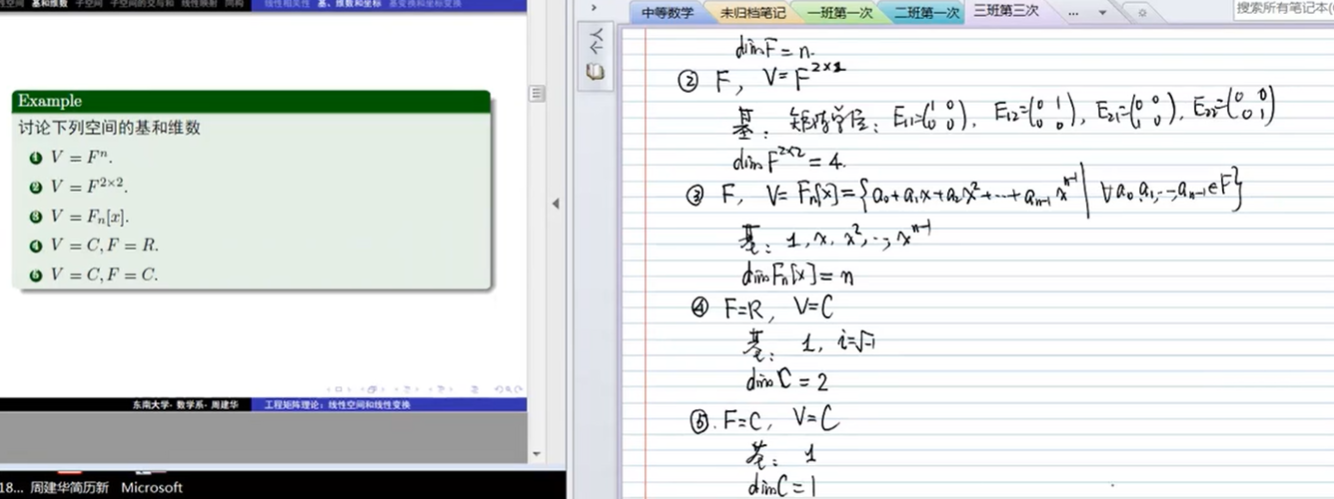 性空间 基和维数 子空间 子空间的交与和 线性映射 同构
线性相关性 基、维数和坐标 基变换和坐标变换
Example
讨论下列空间的基和维数
1 V = Fⁿ.
2 V = F²ˣ².
3 V = Fₙ[x].
4 V = C, F = R.
5 V = C, F = C.
东南大学- 数学系- 周建华 工程矩阵理论：线性空间和线性变换
18... 周建华简历新 Microsoft
中等数学 未归档笔记 一班第一次 二班第一次 三班第三次 ...
搜索所有笔记本
dim F = n.
② F, V = F²ˣ²
基: 矩阵单位: E₁₁=(1 0 0 0), E₁₂=(0 1 0 0), E₂₁=(0 0 1 0), E₂₂=(0 0 0 1)
dim F²ˣ² = 4.
③ F, V = Fₙ[x] = {a₀+a₁x+a₂x²+⋯+aₙ₋₁xⁿ⁻¹ | ∀a₀,a₁,⋯,aₙ₋₁∈F}
基: 1, x, x², ⋯, xⁿ⁻¹
dim Fₙ[x] = n
④ F=R, V=C
基: 1, i=√-1
dim C = 2
⑤. F=C, V=C
基: 1
dim C = 1